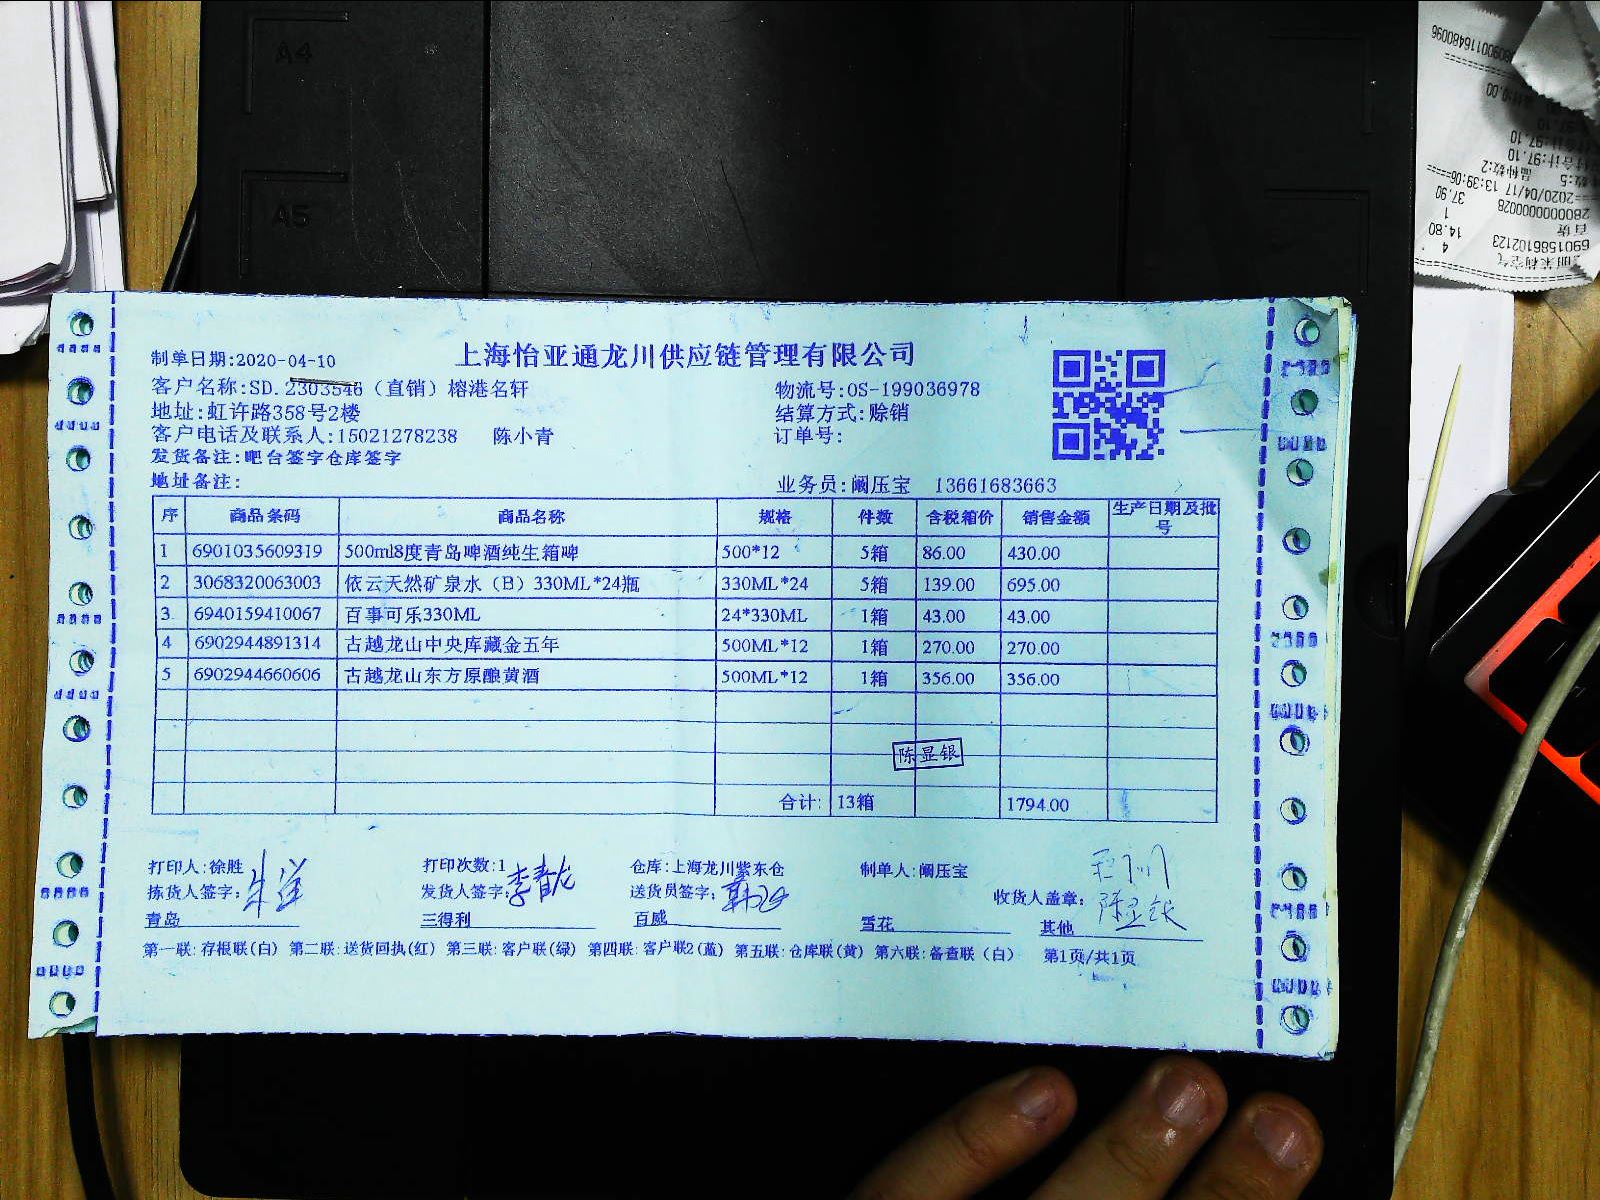 A4
A5
制单日期:2020-04-10
上海怡亚通龙川供应链管理有限公司
客户名称:SD.2303546（直销）榕港名轩
物流号:OS-199036978
地址:虹许路358号2楼
结算方式:赊销
客户电话及联系人:15021278238 陈小青
订单号:
发货备注:吧台签字仓库签字
地址备注:
业务员:阚压宝 13661683663
序 商品条码 商品名称 规格 件数 含税箱价 销售金额 生产日期及批号
1 6901035609319 500ml8度青岛啤酒纯生箱啤 500*12 5箱 86.00 430.00
2 3068320063003 依云天然矿泉水（B）330ML*24瓶 330ML*24 5箱 139.00 695.00
3 6940159410067 百事可乐330ML 24*330ML 1箱 43.00 43.00
4 6902944891314 古越龙山中央库藏金五年 500ML*12 1箱 270.00 270.00
5 6902944660606 古越龙山东方原酿黄酒 500ML*12 1箱 356.00 356.00
陈显银
合计: 13箱 1794.00
打印人:徐胜 打印次数:1 仓库:上海龙川紫东仓 制单人:阚压宝
拣货人签字: 发货人签字:李春龙 送货员签字: 收货人盖章:陈显银
青岛 三得利 百威 雪花 其他
第一联:存根联(白) 第二联:送货回执(红) 第三联:客户联(绿) 第四联:客户联2(蓝) 第五联:仓库联(黄) 第六联:备查联（白） 第1页/共1页
6901586102123
4 14.80
百货
2800000000028
1 37.90
2020/04/17 13:39:06
数:5 品种数:2
合计:97.10